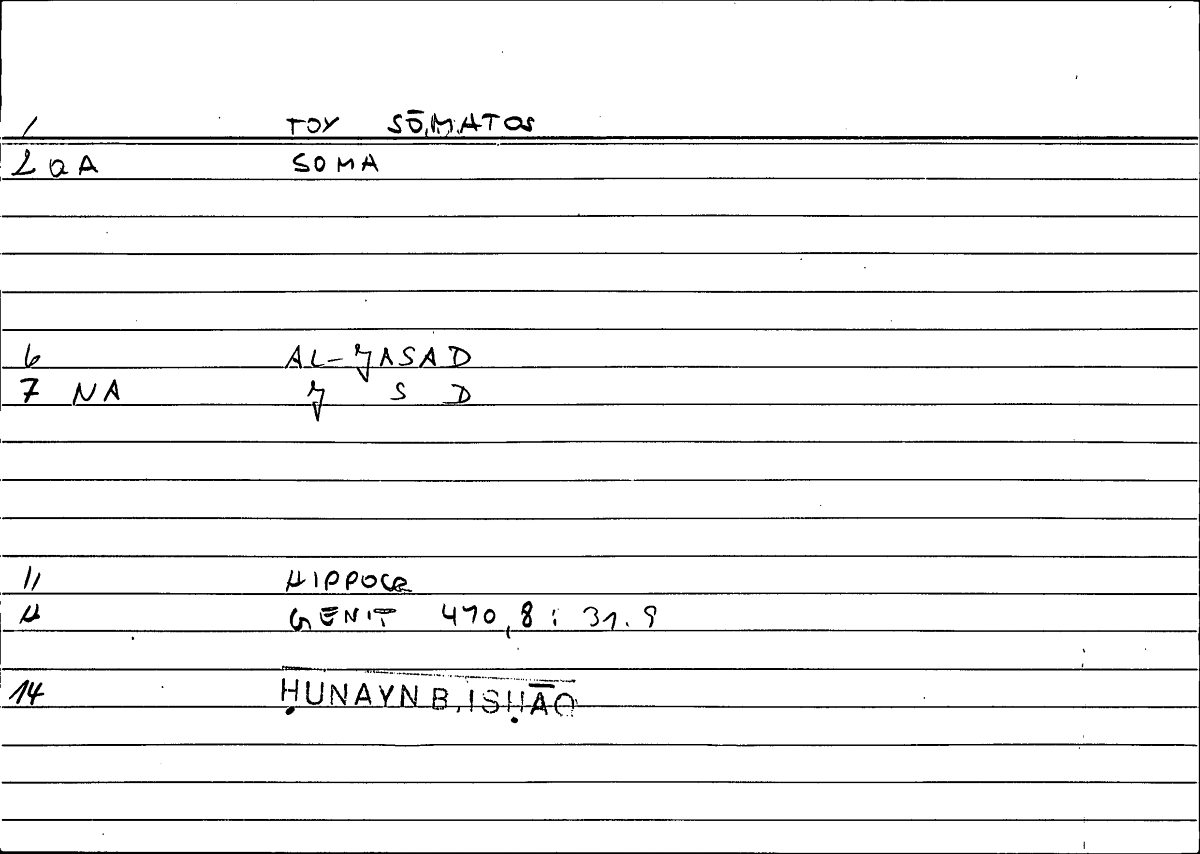 1 TOY SŌMATOS
2 aA SOMA
6 AL-JASAD
7 NA J S D
11 HIPPOCR
12 GENIT 470,8 : 31.9
14 ḤUNAYN B. ISḤĀQ